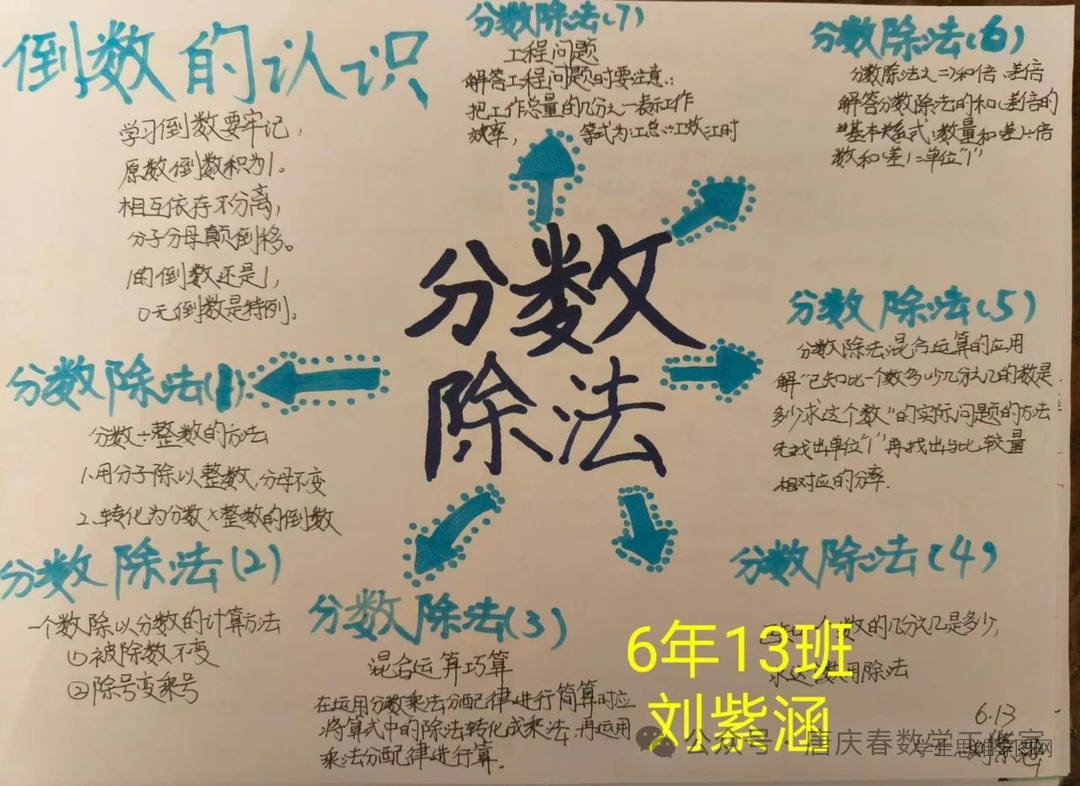 倒数的认识
学习倒数要牢记，
原数倒数积为1。
相互依存不分离，
分子分母颠倒移。
1的倒数还是1，
0无倒数是特例。
分数除法(7)
工程问题
解答工程问题时要注意：
把工作总量的几分之一表示工作
效率， 等式为：工总÷工效=工时
分数除法(6)
分数除法之=)和倍、差倍
解答分数除法的和(差)倍的
基本关系式：数量和(差)÷倍
数和(差)=单位"1"
分数
除法
分数除法(1):
分数÷整数的方法
1.用分子除以整数,分母不变
2.转化为分数×整数的倒数
分数除法(5)
分数除法混合运算的应用
解"已知比一个数多(少)几分之几的数是
多少求这个数"的实际问题的方法
先找出单位"1"再找出与比较量
相对应的分率.
分数除法(2)
一个数除以分数的计算方法
①被除数不变
②除号变乘号
分数除法(3)
混合运算巧算
在运用分数乘法分配律进行简算时应
将算式中的除法转化成乘法,再运用
乘法分配律进行算.
分数除法(4)
一个数的几分之几是多少,
求这个数用除法
6年13班
刘紫涵
6.13
公众号 唐庆春数学工作室
学生思维导图网